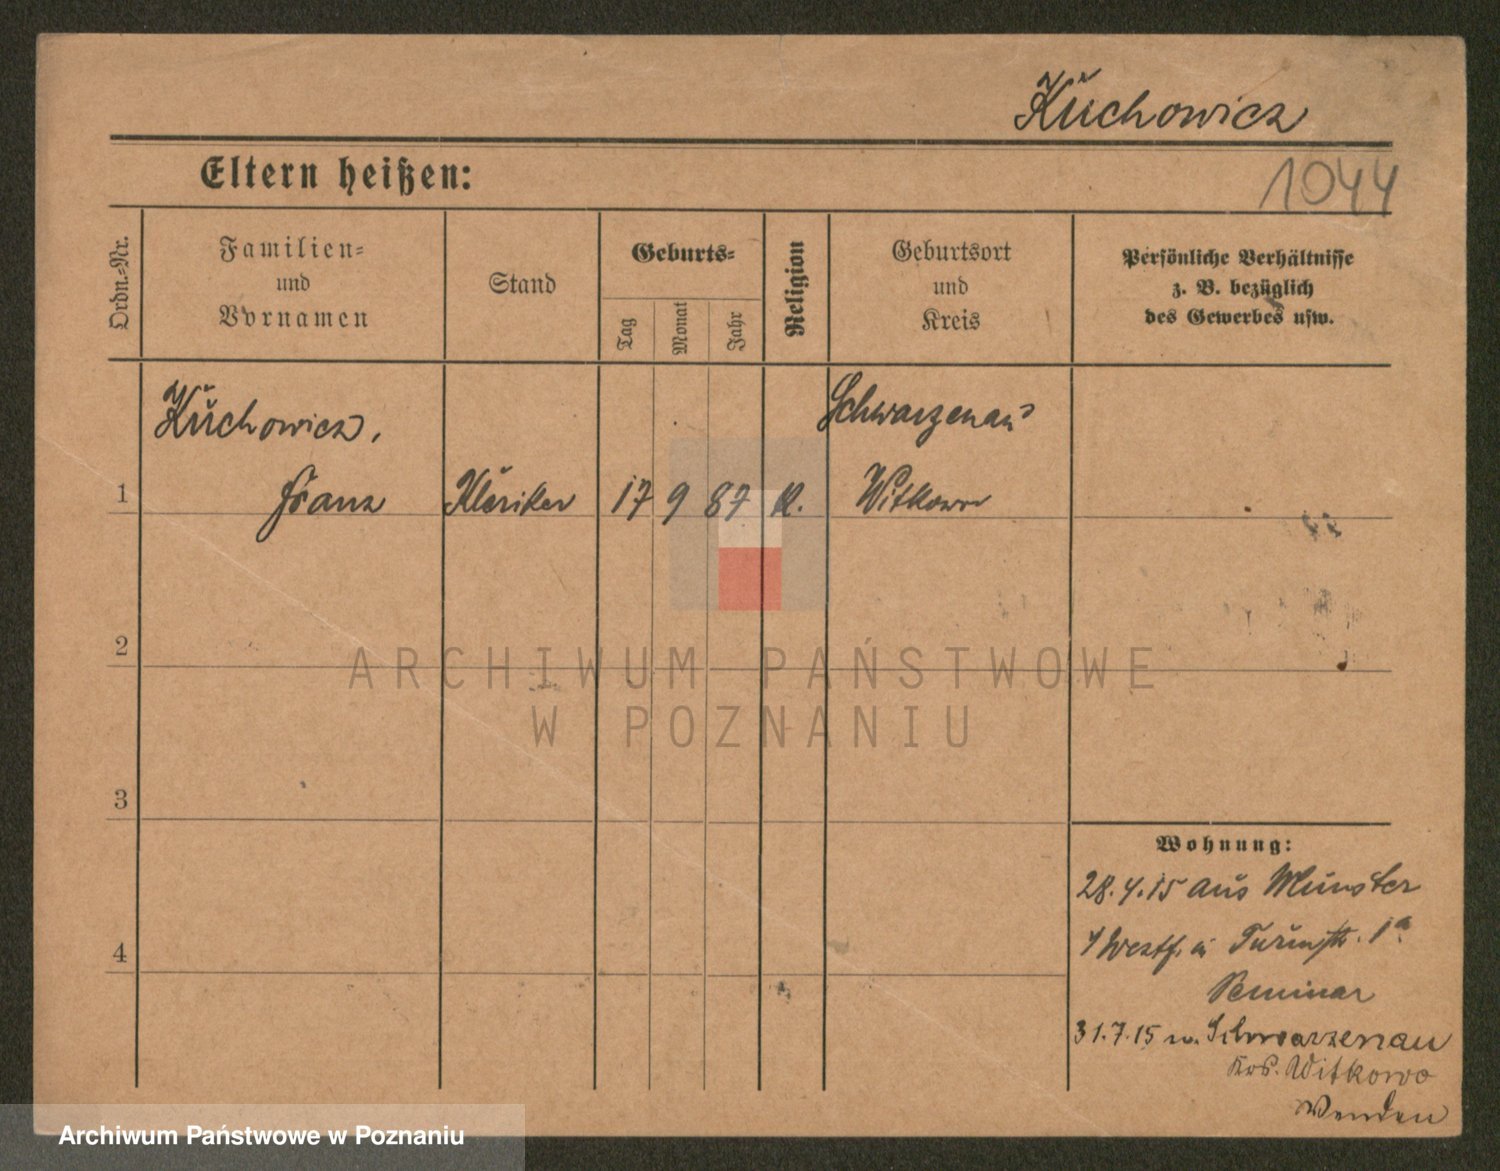 Kuchowicz
1044
Eltern heißen:
Ordn.-Nr.
Familien-
und
Vornamen
Stand
Geburts-
Tag
Monat
Jahr
Religion
Geburtsort
und
Kreis
Persönliche Verhältnisse
z. B. bezüglich
des Gewerbes usw.
Kuchowicz,
Schwarzenau
1 Franz Kleriker 17 9 87 K. Witkowo
2
ARCHIWUM PAŃSTWOWE
W POZNANIU
3
Wohnung:
28.4.15 aus Münster
Westf. in Turmstr. 1a
4
Seminar
31.7.15 n. Schwarzenau
Krs. Witkowo
Wenden
Archiwum Państwowe w Poznaniu